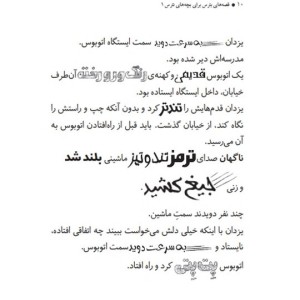 ۱۰ • قصه‌های ترس برای بچه‌های نترس ۱
یزدان به‌سرعت دوید سمت ایستگاه اتوبوس.
مدرسه‌اش دیر شده بود.
یک اتوبوس قدیمی و کهنه‌ی رنگ‌و‌رو‌رفته آن‌طرف
خیابان، داخل ایستگاه ایستاده بود.
یزدان قدم‌هایش را تندتر کرد و بدون آنکه چپ و راستش را
نگاه کند، از خیابان گذشت. باید قبل از راه‌افتادن اتوبوس به
آن می‌رسید.
ناگهان صدای ترمز تند و تیز ماشینی بلند شد
و زنی جیغ کشید.
چند نفر دویدند سمت ماشین.
یزدان با اینکه خیلی دلش می‌خواست ببیند چه اتفاقی افتاده،
نایستاد و به‌سرعت دوید سمت اتوبوس.
اتوبوس پت‌پتی کرد و راه افتاد.